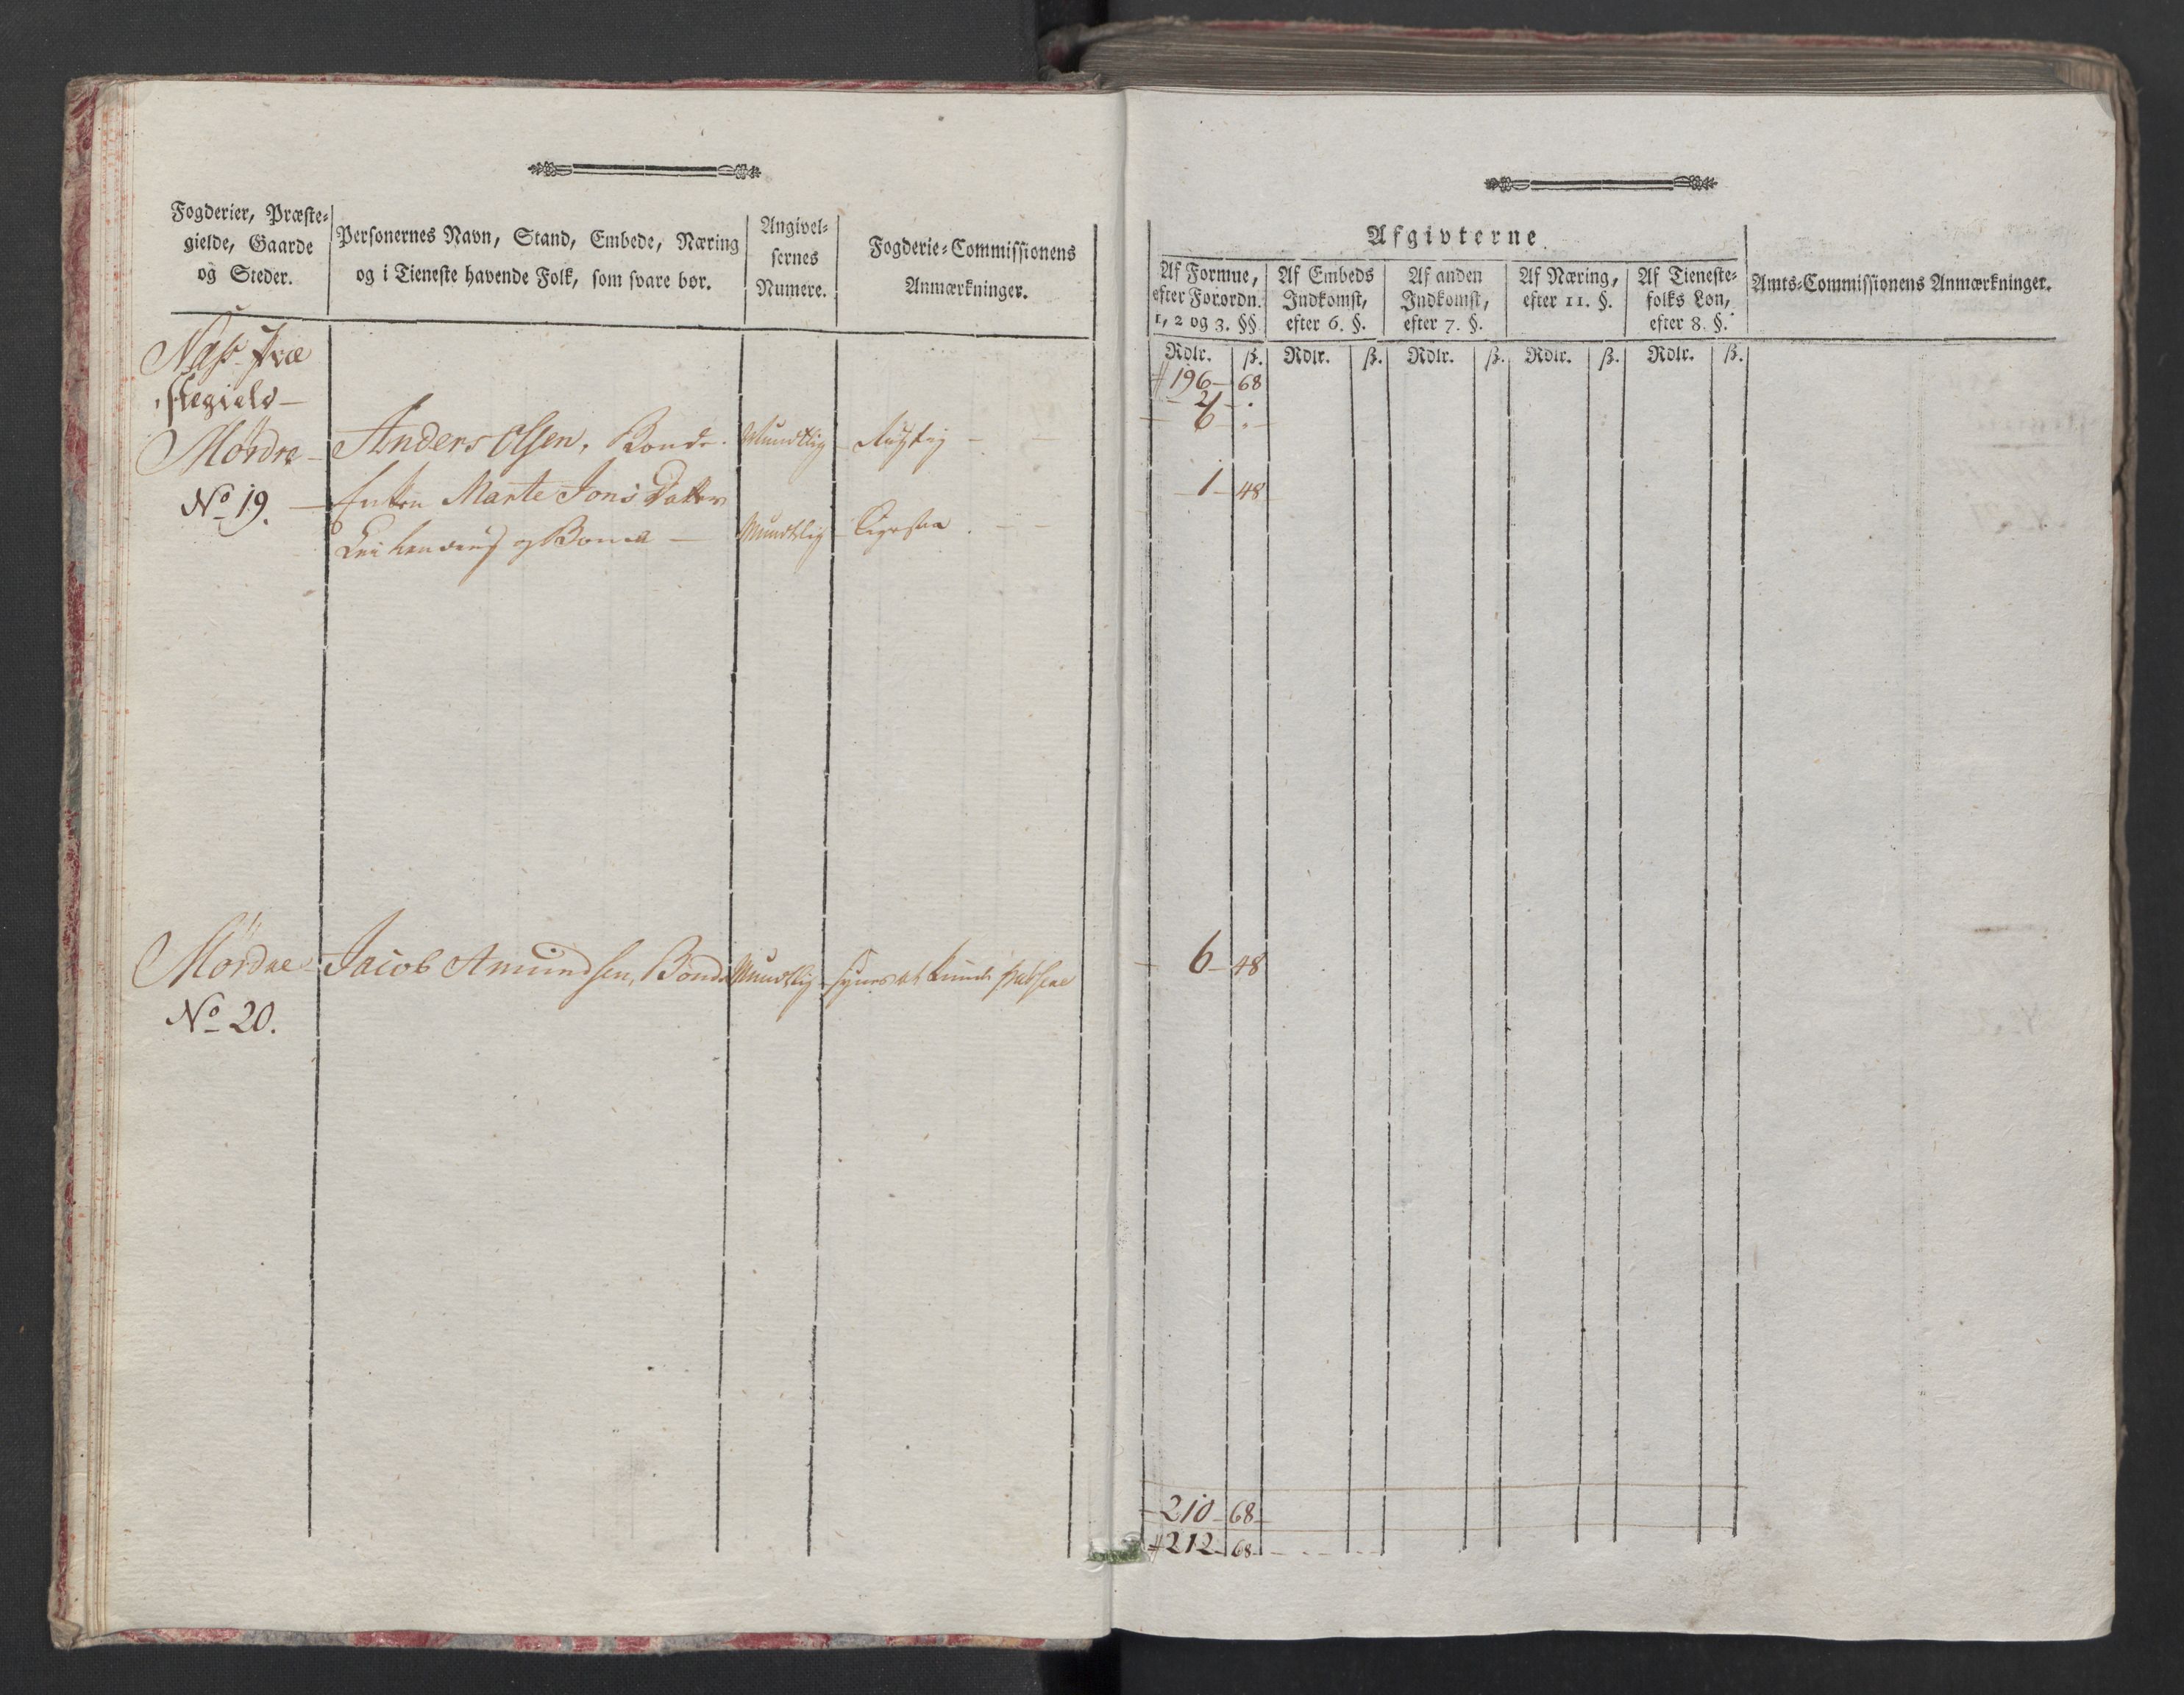 Fogderier, Præste-
gielde, Gaarde
og Steder.
Personernes Navn, Stand, Embede, Næring
og i Tieneste havende Folk, som svare bør.
Angivel-
sernes
Numere.
Fogderie-Commissionens
Anmærkninger.
Næss Præ
stegield
Mördre Anders Olsen, Bonde. Mundtlig Rigtig
No 19. Enken Marte Jons Datter
og Mundtlig Ligesaa
Mördre Jacob Amundsen, Bonde Mundtlig synes at kunde
No 20.
Afgivterne.
Af Formue,
efter Forordn.
1, 2 og 3. §§.
Af Embeds
Indkomst,
efter 6. §.
Af anden
Indkomst,
efter 7. §.
Af Næring,
efter 11. §.
Af Tieneste-
folks Løn,
efter 8. §.
Amts-Commissionens Anmærkninger.
Rdlr. ß. Rdlr. ß. Rdlr. ß. Rdlr. ß. Rdlr. ß.
196 68
2
6
1 48
6 48
210 68
212 68